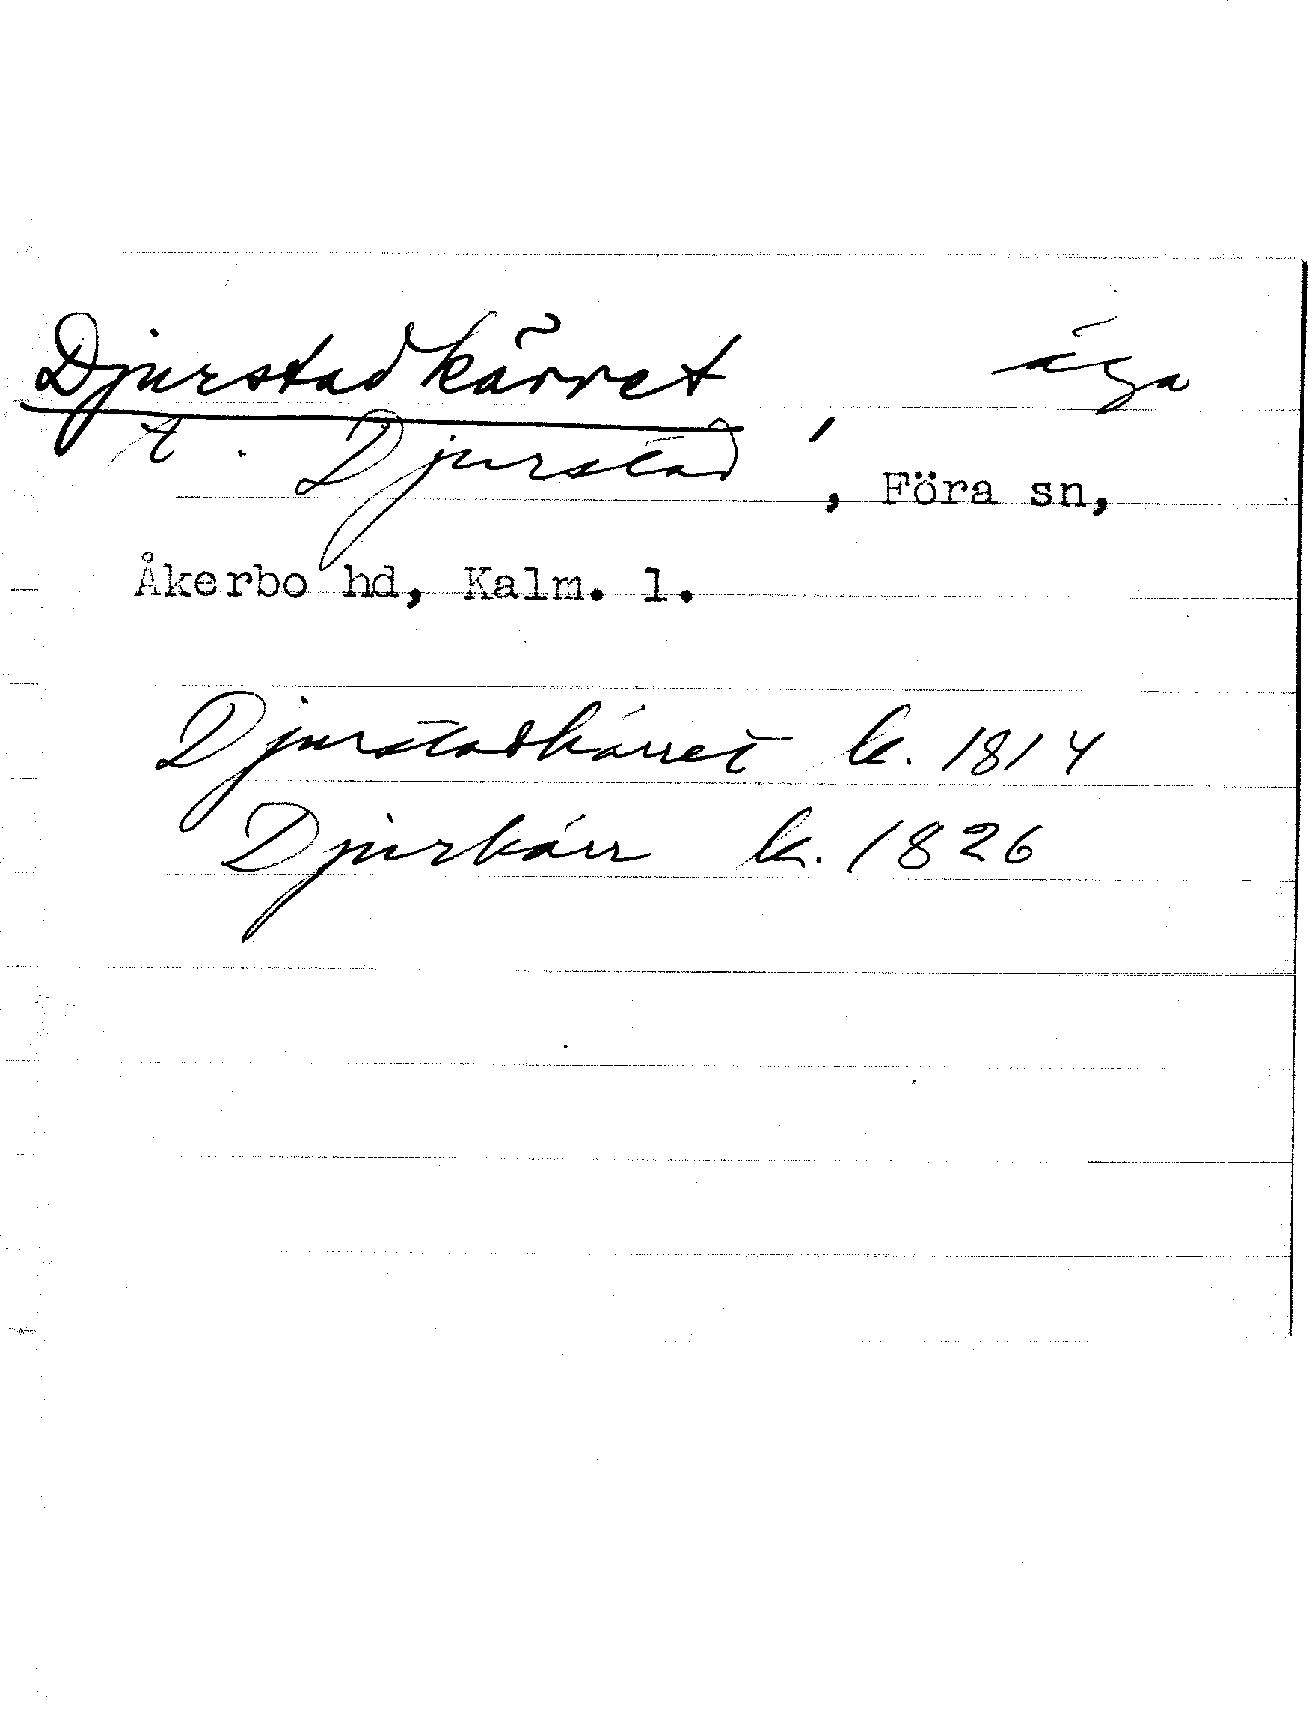 Djurstadkärret, äga
t. Djurstad, Föra sn,
Åkerbo hd, Kalm. l.
Djurstadkärret k. 1814
Djurkärr k. 1826